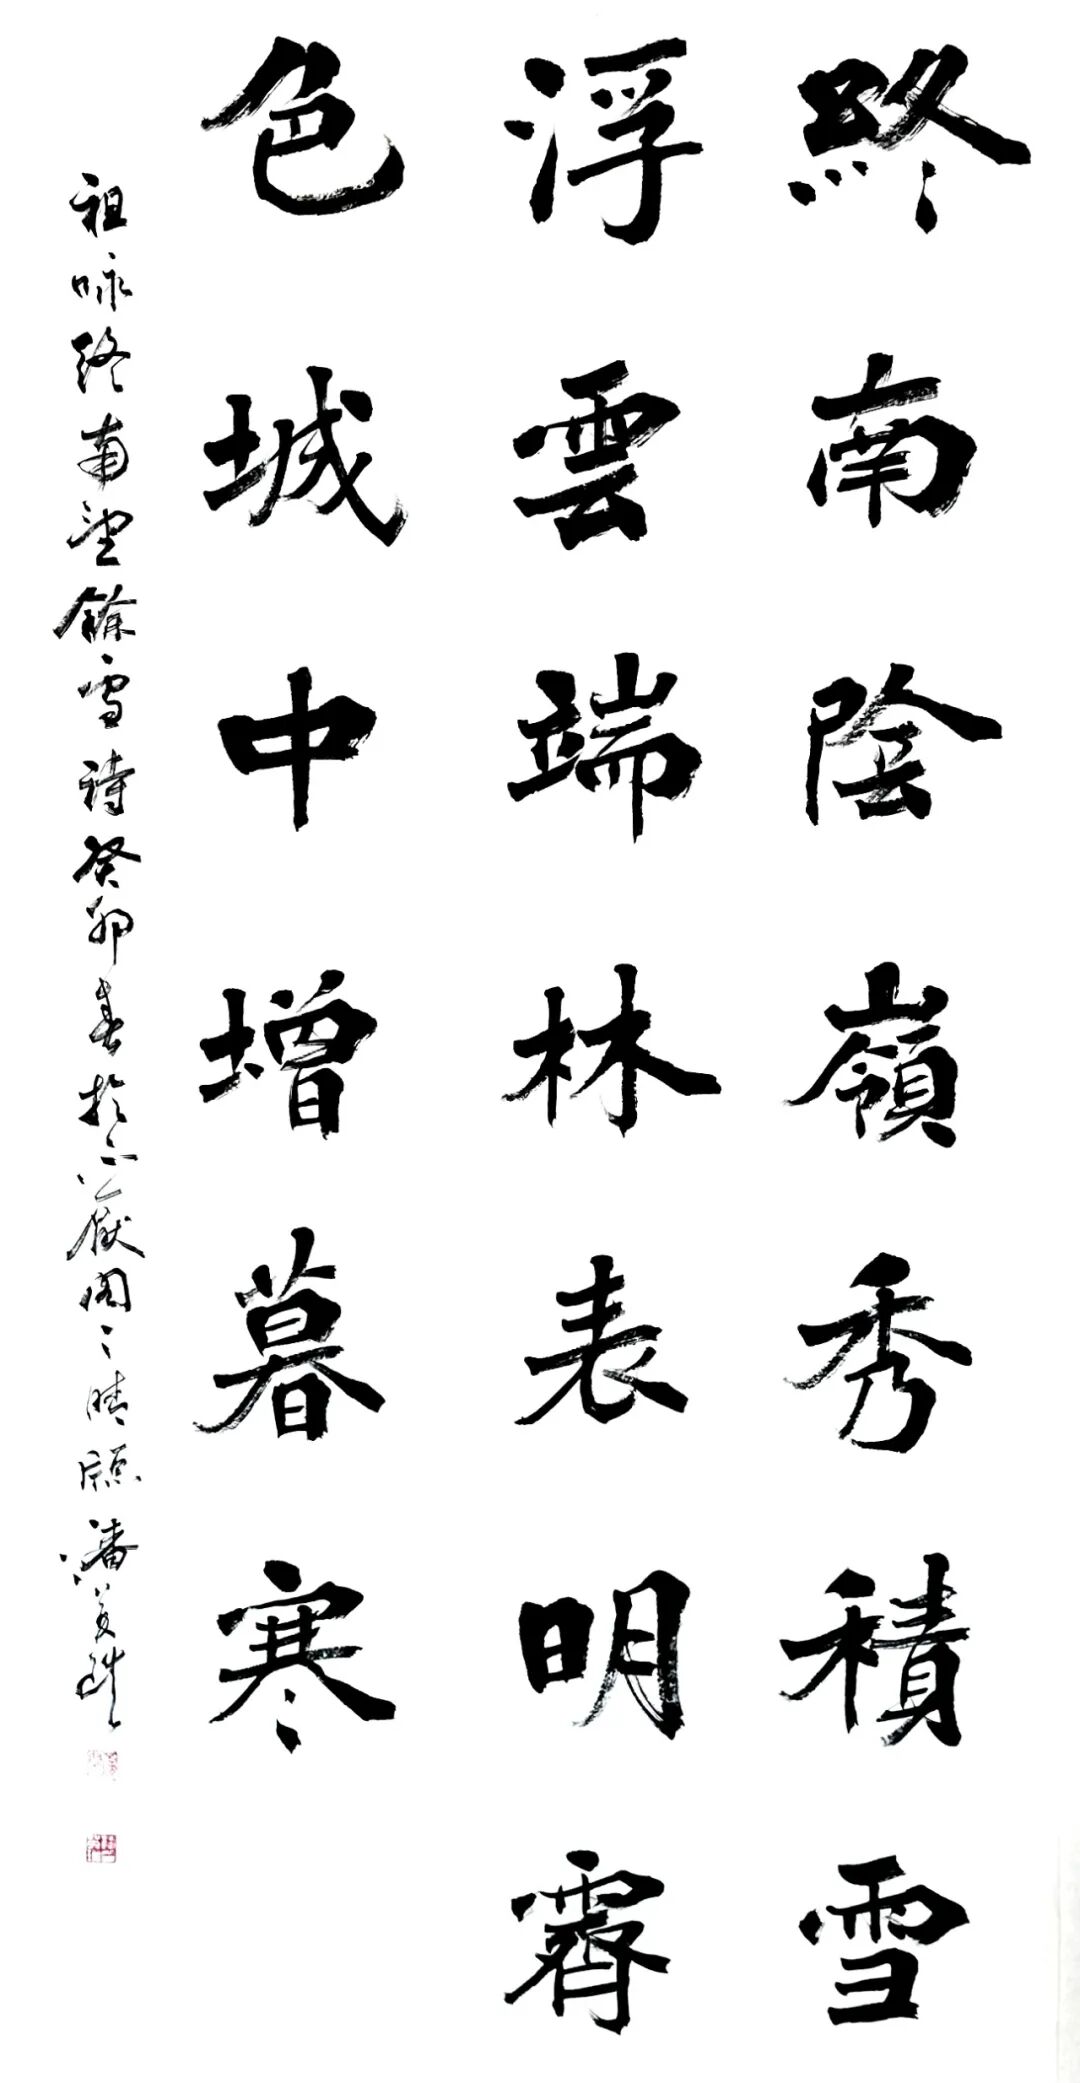 終南陰嶺秀積雪
浮雲端林表明霽
色城中增暮寒
祖咏終南望餘雪詩癸卯春於六厭閣之晴願潘善珠